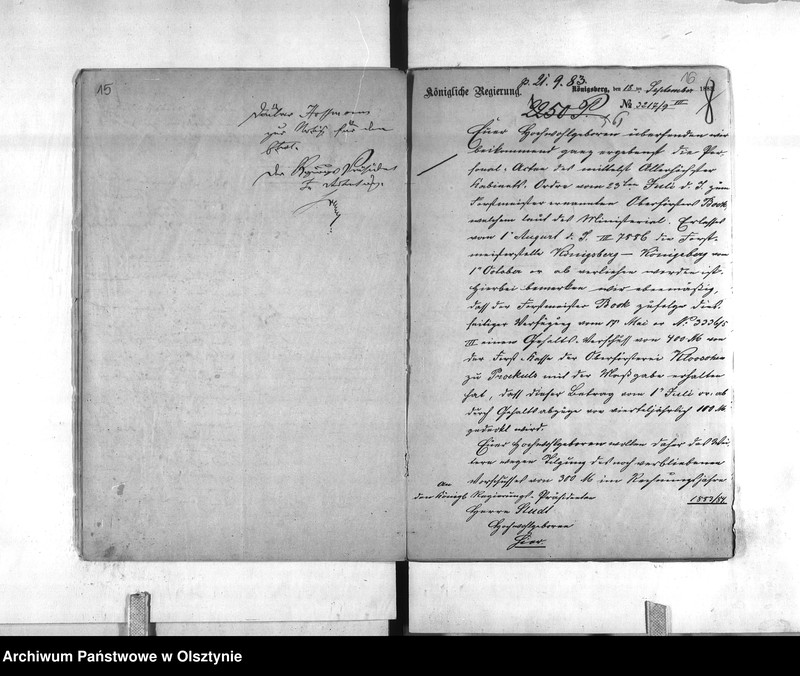 15
16
p. 21. 9. 83.
Königliche Regierung.
Königsberg, den 18 ten September 1883
2250 P
6
№ 3217/9 III
8
Euer Hochwohlgeboren übersenden wir
beikommend ganz ergebenst die Per-
sonal-Acten des mittelst Allerhöchster
Kabinets-Ordre vom 23ten Juli d. J. zum
Forstmeister ernannten Oberförsters Bock
welchem laut des Ministerial-Erlasses
vom 1 August d. J. III 7886 die Forst-
meisterstelle Königsberg-Königsberg vom
1 October cr. ab verliehen worden ist.
Hierbei bemerken wir ebenmäßig,
daß der Forstmeister Bock zufolge dies-
seitiger Verfügung vom Mai cr. No 3336/5
III einen Gehalts-Vorschuß von 400 M von
der Forst-Kasse der Oberförsterei Klooschen
zu Prockuls mit der Maßgabe erhalten
hat, daß dieser Betrag vom 1 Juli cr. ab
durch Gehaltsabzüge von vierteljährlich 100 M
gedeckt wird.
Euer Hochwohlgeboren wollen daher das Wei-
tere wegen Tilgung des noch verbliebenen
Vorschusses von 300 M im Rechnungsjahre
1883/84
An
den Königl. Regierungs-Präsidenten
Herrn Studt
Hochwohlgeboren
Hier.
Archiwum Państwowe w Olsztynie